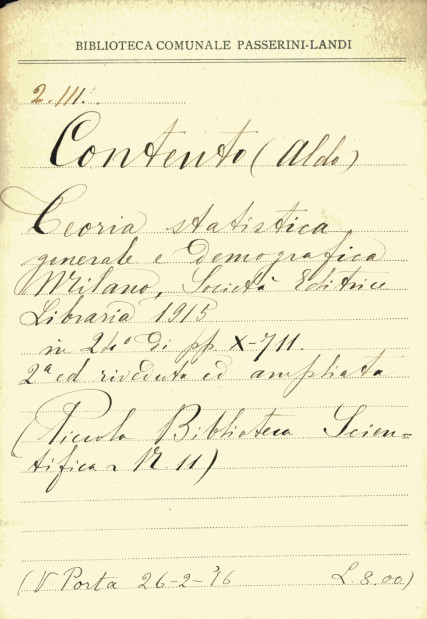 BIBLIOTECA COMUNALE PASSERINI-LANDI
2.III.
Contento (Aldo)
Teoria statistica
generale e demografica
Milano, Società Editrice
Libraria 1915
in 24° di pp X-711.
2ª ed riveduta ed ampliata
(Piccola Biblioteca Scien=
tifica N. 11)
(V Porta 26-2-'16 L. 8.00)